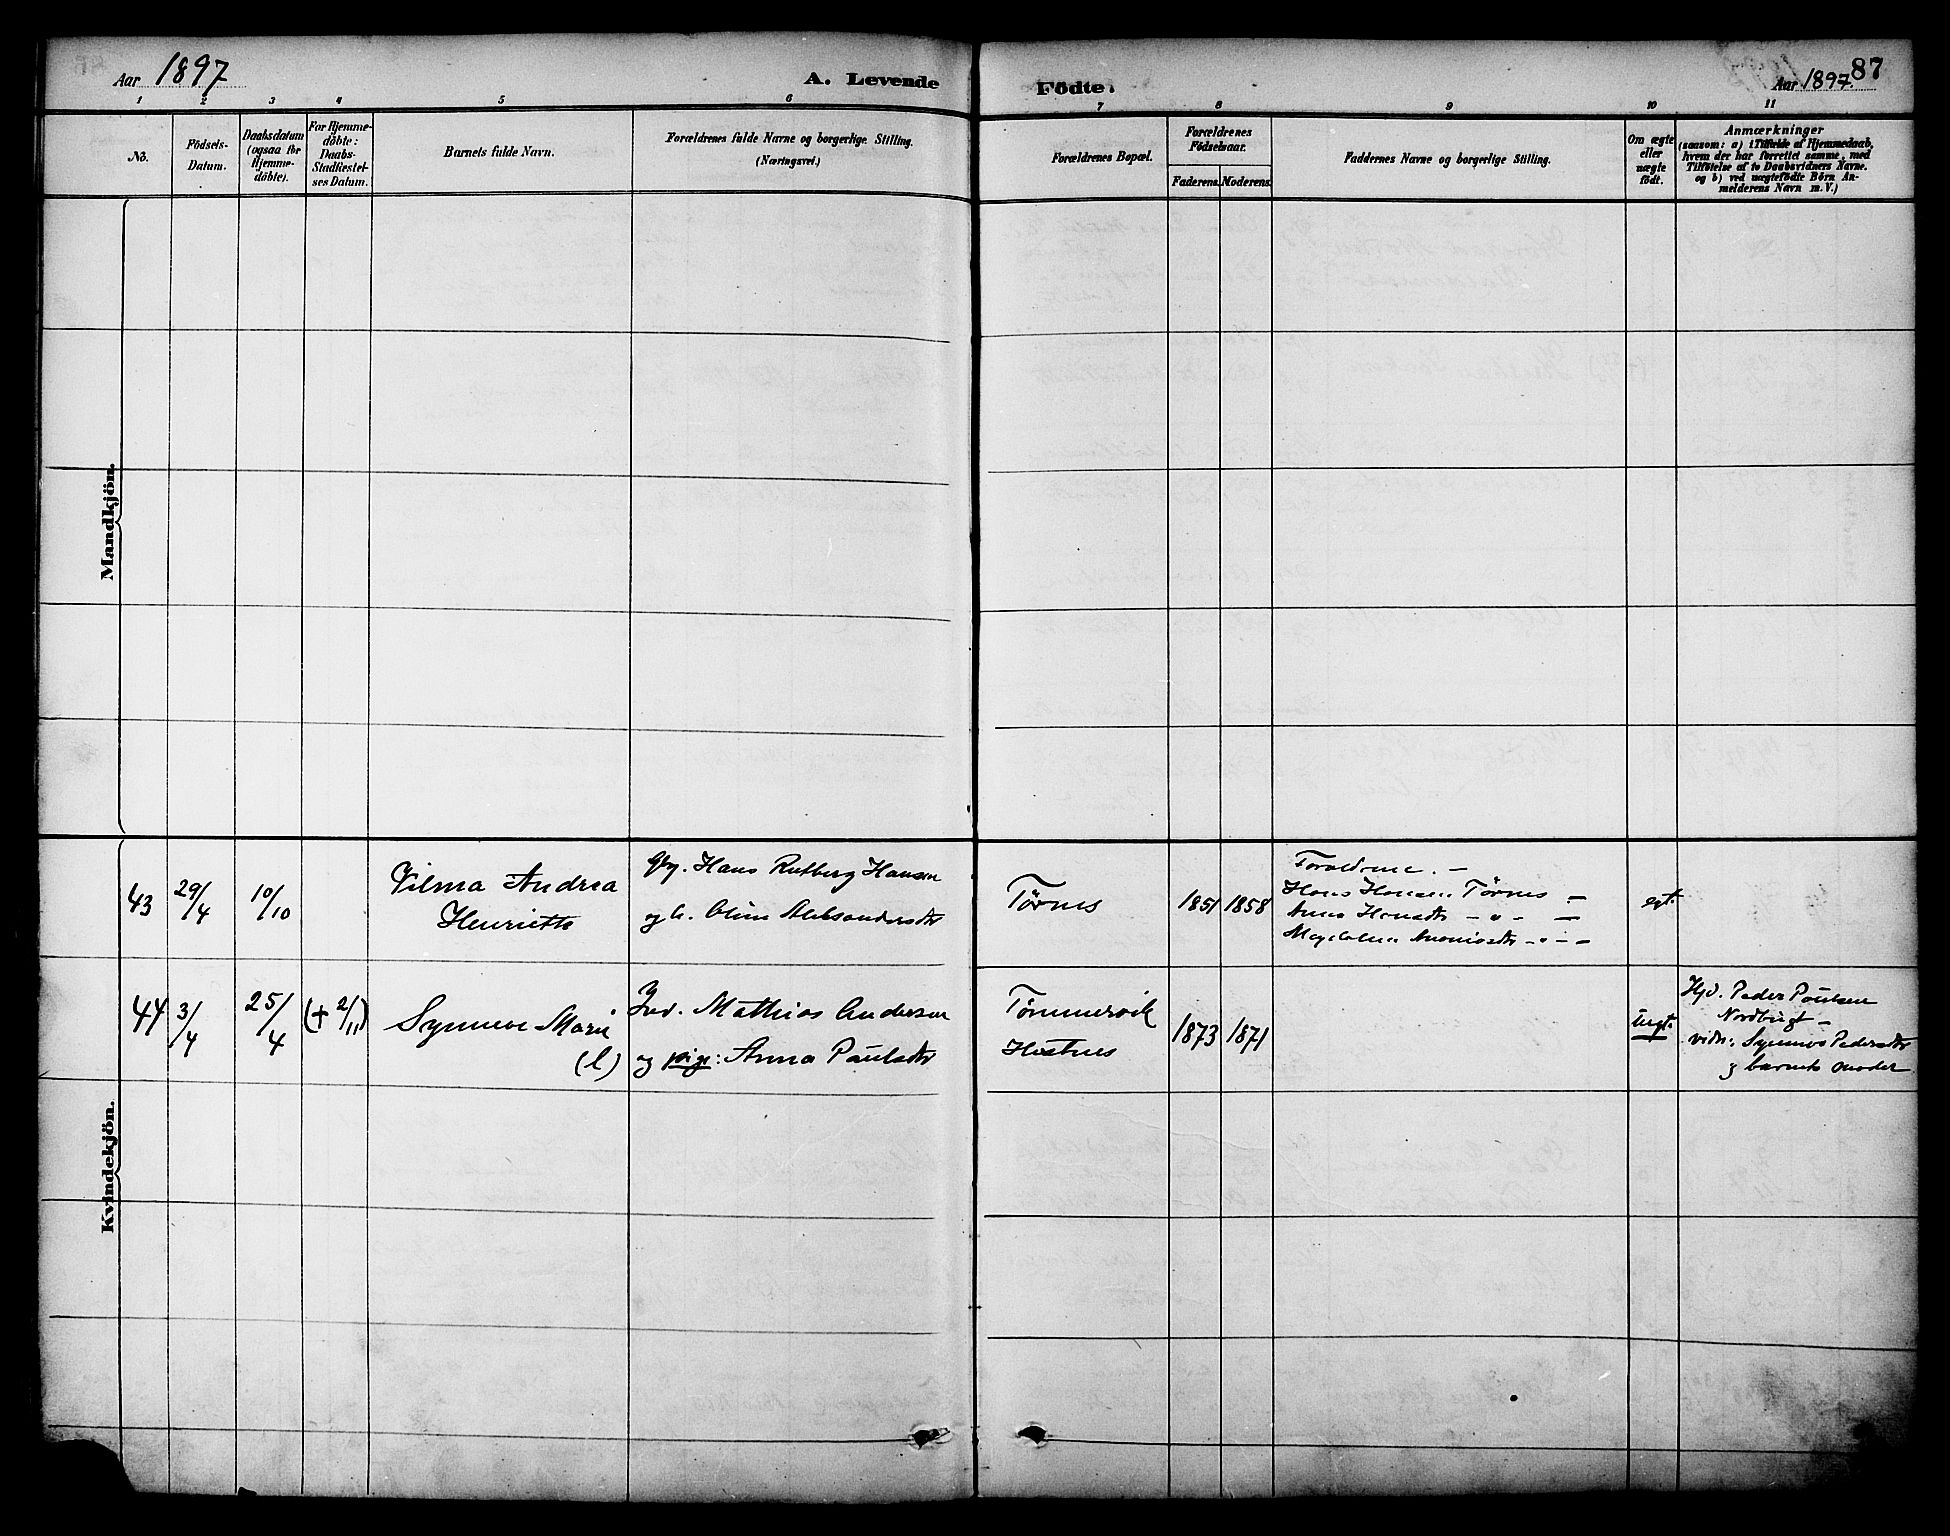 Aar 1897
A. Levende
Födte.
Aar 1897.
87
1 2 3 4 5 6 7 8 9 10 11
No.
Födsels-
Datum.
Daabsdatum
(ogsaa for
Hjemme-
döbte).
For Hjemme-
döbte:
Daabs-
Stadfæstel-
ses Datum.
Barnets fulde Navn.
Forældrenes fulde Navne og borgerlige Stilling.
(Næringsvei.)
Forældrenes Bopæl.
Forældrenes
Födselsaar.
Faderens.
Moderens.
Faddernes Navne og borgerlige Stilling.
Om ægte
eller
uægte
födt.
Anmærkninger
(saasom: a) i Tilfælde af Hjemmedaab,
hvem der har forrettet samme, med
Tilföielse af to Daabsvidners Navne.
og b) ved uægtefödte Börn An-
melderens Navn m. V.)
Mandkjön.
Kvindekjön.
43
29/4
10/10
Vilma Andrea
Henriette
Hans Rutberg Hansen
og h. Oline Aleksandersdtr
Törnes
1851
1858
Forældrene. –
Hans Hansen Törnes –
Anna Hansdtr – " – –
Magdalena – " – –
egt.
44
3/4
25/4
(+ 2/11)
Synneve Marie
(l)
Ind. Mathias Andersen
og pige: Anna Paulsdtr
Tömmervik
Hestnes
1873
1871
uegt.
Hjd. Peder Paulsen
Nordbugt –
vidn: Synnøv Pedersdtr
g barnets moder